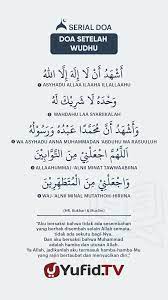 SERIAL DOA
DOA SETELAH
WUDHU
أَشْهَدُ أَنْ لَا إِلَهَ إِلَّا اللَّهُ
ASYHADU ALLAA ILAAHA ILLALLAAHU
وَحْدَهُ لَا شَرِيْكَ لَهُ
WAHDAHU LAA SYAREKALAH
وَأَشْهَدُ أَنَّ مُحَمَّدًا عَبْدُهُ وَرَسُوْلُهُ
WA ASYHADU ANNA MUHAMMADAN 'ABDUHU WA RASUULUH
اَللّٰهُمَّ اجْعَلْنِيْ مِنَ التَّوَّابِيْنَ
ALLAAHUMMAJ-'ALNII MINAT TAWWAABIINA
وَاجْعَلْنِيْ مِنَ الْمُتَطَهِّرِيْنَ
WAJ-'ALNII MINAL MUTATHOH-HIRIINA
"Aku bersaksi bahwa tidak ada sesembahan
yang berhak disembah selain Allah semata,
tidak ada sekutu bagi-Nya.
Dan aku bersaksi bahwa Muhammad
adalah hamba dan utusan Allah.
Ya Allah, jadikanlah aku termasuk hamba-hamba-Mu
yang rajin bertaubat dan menyucikan diri."
YUFID.TV